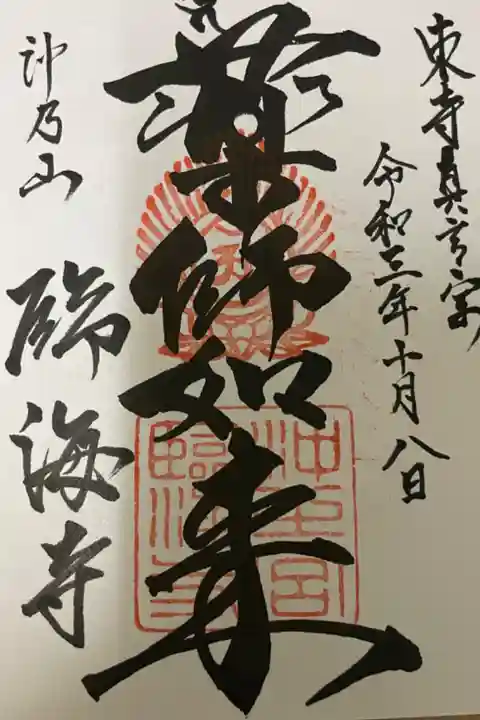 東寺真言宗
令和三年十月八日
薬師如来
沖乃山
臨海寺
臨海寺